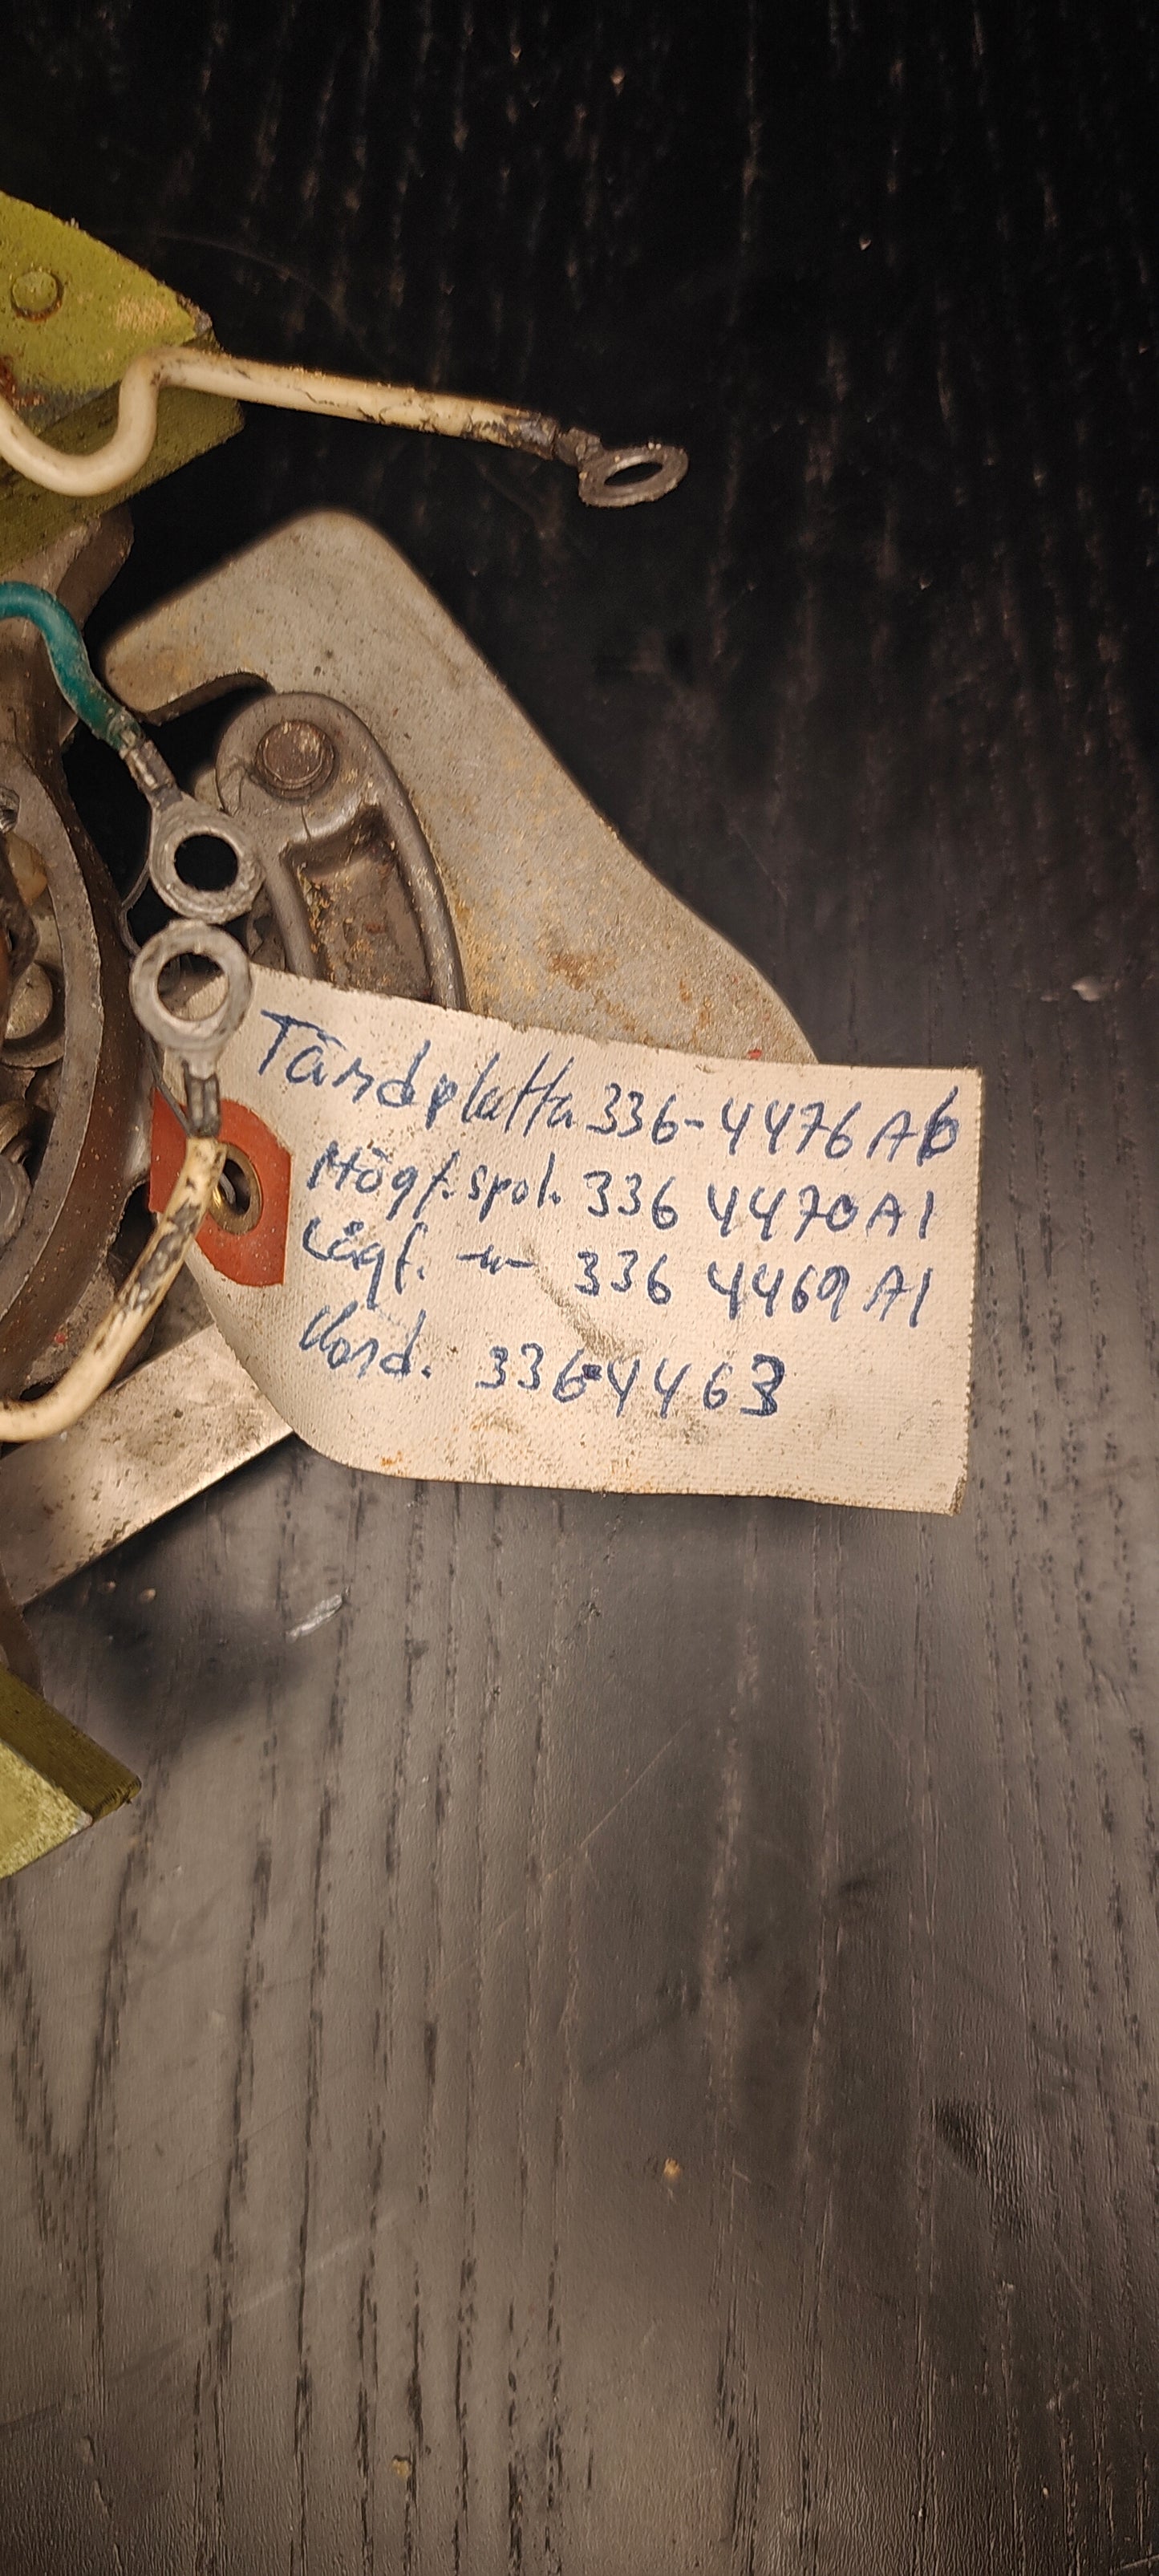 Tändplatta 336-4476 A6
Högf.spol. 336 4470 A1
Lågf. -"- 336 4469 A1
Kond. 336-4463